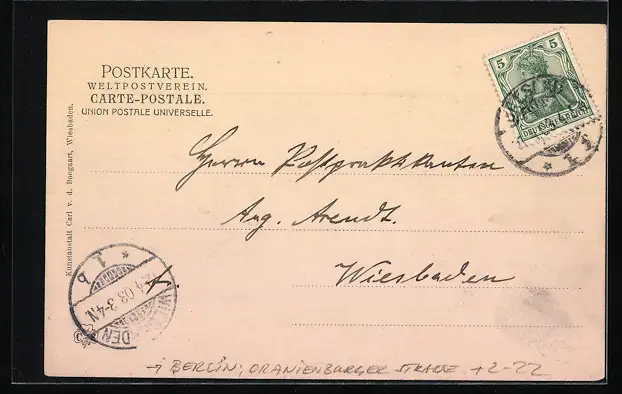 POSTKARTE.
WELTPOSTVEREIN.
CARTE-POSTALE.
UNION POSTALE UNIVERSELLE.
5 5
DEUTSCHES REICH
Herrn Postpraktikanten
Aug. Arendt.
Wiesbaden
Kunstanstalt Carl v. d. Boogaart, Wiesbaden.
03. 3-4N
→ BERLIN, ORANIENBURGER STRASSE +2-22